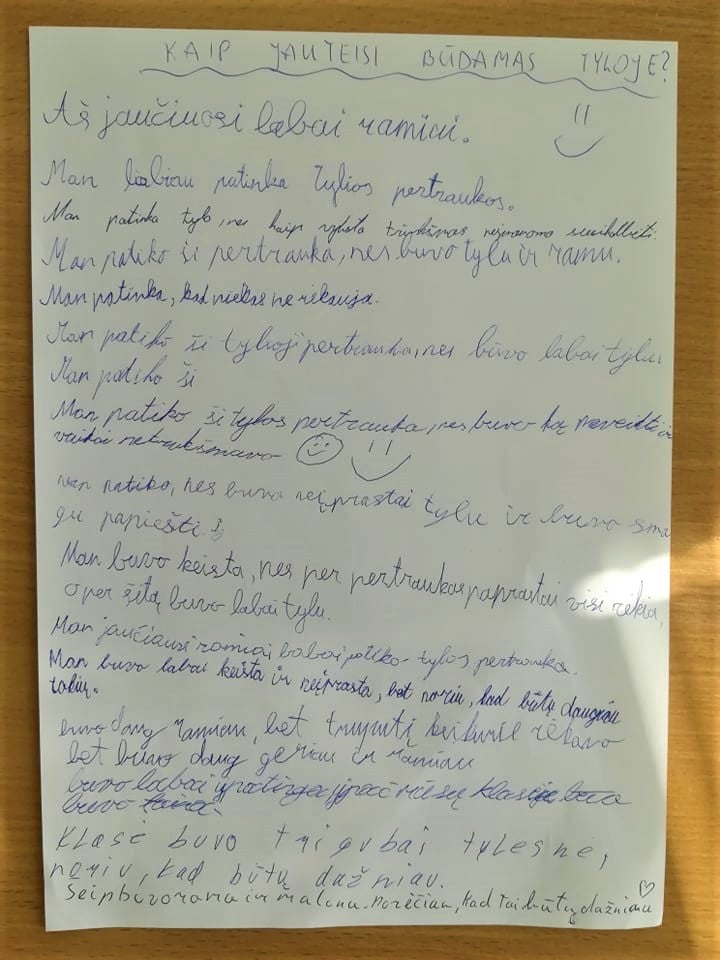 KAIP JAUTEISI BŪDAMAS TYLOJE?
Aš jaučiuosi labai ramiai.
Man labiau patinka tylios pertraukos.
Man patinka tyla, nes kaip vyksta triukšmas neįmanoma susikalbėti.
Man patiko ši pertrauka, nes buvo tylu ir ramu.
Man patinka, kad niekas ne rėkauja.
Man patiko ši tylioji pertrauka, nes būvo labai tylu.
Man patiko ši
Man patiko ši tylos pertrauka, nes buvo ką nuveikti ir
vaikai netriukšmavo
Man patiko, nes buvo neįprastai tylu ir buvo sma
gu papiešti.
Man buvo keista, nes per pertraukas paprastai visi rėkia,
o per šitą buvo labai tylu.
Man jaučiausi ramiai labai patiko tylos pertrauka.
Man buvo labai keista ir neįprasta, bet noriu, kad būtų daugiau
tokių.
buvo daug ramiau, bet truputį kai kurie rėkavo
bet buvo daug geriau ir ramiau
buvo labai ypatinga ypač mūsų klasėje
buvo
Klasė buvo trigubai tylesnė,
noriu, kad būtų dažniau.
Šeip buvo ramu ir malonu. Norėčiau, kad tai būtų dažniau